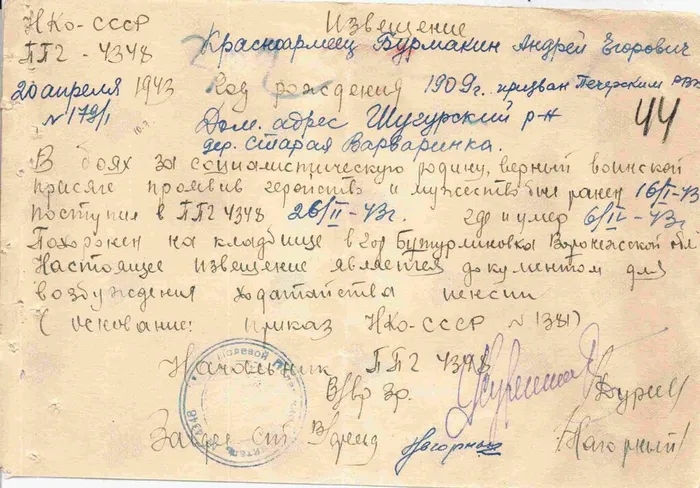 НКО-СССР Извещение
ППГ-4348 Красноармеец Бурмакин Андрей Егорович
20 апреля 1943 Год рождения 1909г. призван Печерским РВК
N 179/1 Дом. адрес Шугурский р-н 44
дер. Старая Варваринка.
В боях за социалистическую родину, верный воинской
присяге проявив геройство и мужество был ранен 16/I-43
поступил в ППГ 4348 26/II-43г. где и умер 6/IV-43г
Похоронен на кладбище в гор Бутурлиновка Воронежской обл
Настоящее извещение является документом для
возбуждения ходатайства пенсии
(основание: приказ НКО-СССР N 138)
Начальник ППГ 4348
В/вр 3р.
Нагорный Нагорный